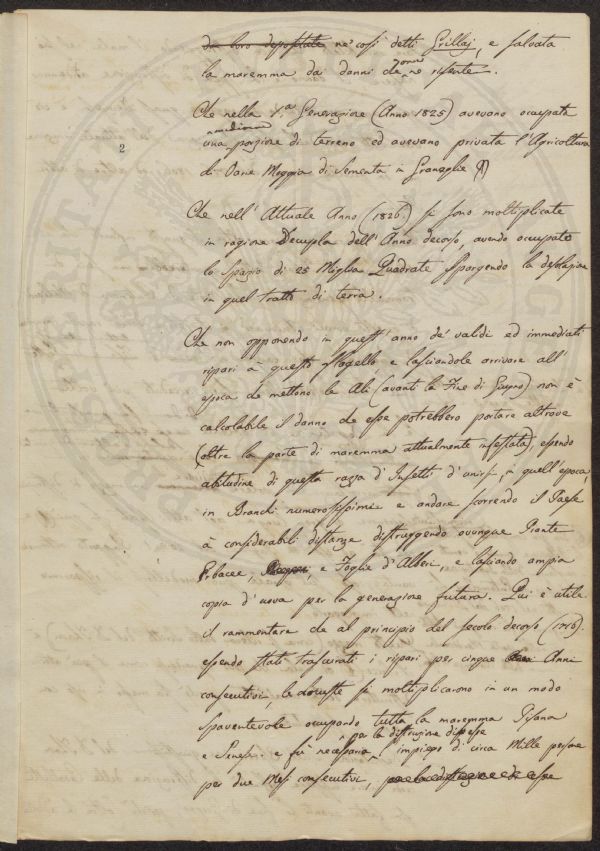 da loro depositate ne' così detti Grillaj, e salvata
la maremma dai danni che ne risente.
2
Che nella 1.a Generazione (Anno 1825) avevano occupata
una porzione di terreno ed avevano privata l'Agricoltura
di Varie Moggia di Sementa in Granaglie
Che nell'Attuale Anno (1826.) si sono moltiplicate
in ragione Decupla dell'Anno decorso, avendo occupato
lo spazio di 25 Miglia Quadrate spargendo la desolazione
in quel tratto di terra.
Che non opponendo in quest'anno de' validi ed immediati
ripari a questo flagello e lasciandole arrivare all'
epoca che mettono le Ali (avanti la Fine di Giugno) non è
calcolabile il danno che esse potrebbero portare altrove
(oltre la parte di maremma attualmente infestata), essendo
abitudine di questa razza d'Insetti d'unirsi, in quell'epoca,
in Branchi numerosissimi e andare scorrendo il Paese
à considerabili distanze distruggendo ovunque Piante
Erbacee, e Foglie d'Alberi, e lasciando ampia
copia d'uova per la generazione futura. Qui è utile
il rammentare che al principio del secolo decorso (1716).
essendo stati trascurati i ripari per cinque Anni
consecutivi, le locuste si moltiplicarono in un modo
spaventevole occupando tutta la maremma Pisana
per la distruzione di esse
e Senese. e fù necessario l'impiego di circa Mille persone
per due Mesi consecutivi, per la distruzione di esse